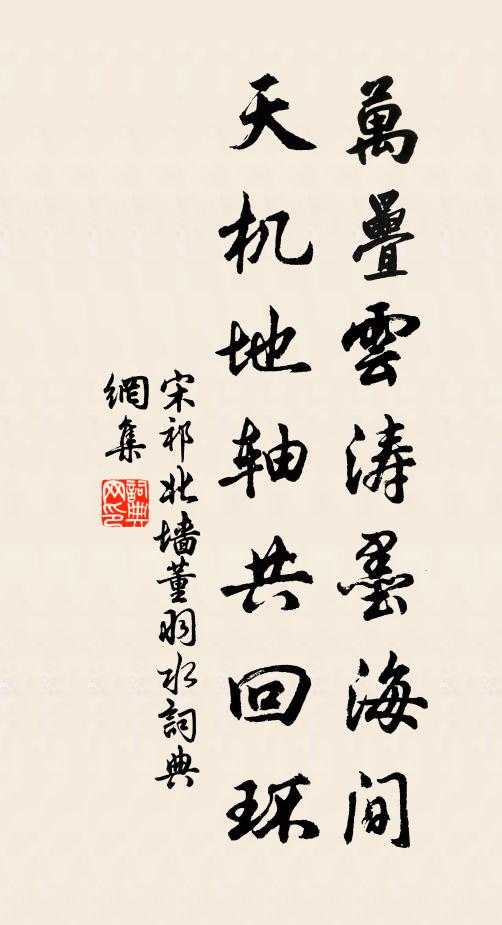 萬疊雲涛墨海间
天机地轴共回环
宋祁北墙董羽水詞典
網集
詞典
网印